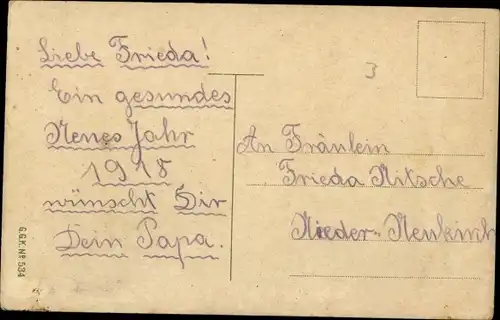 Liebe Frieda!
Ein gesundes
Neues Jahr
1918
wünscht Dir
Dein Papa.
3
An Fräulein
Frieda Nitsche
Nieder-Neukirch
G.G.K. Nº 534